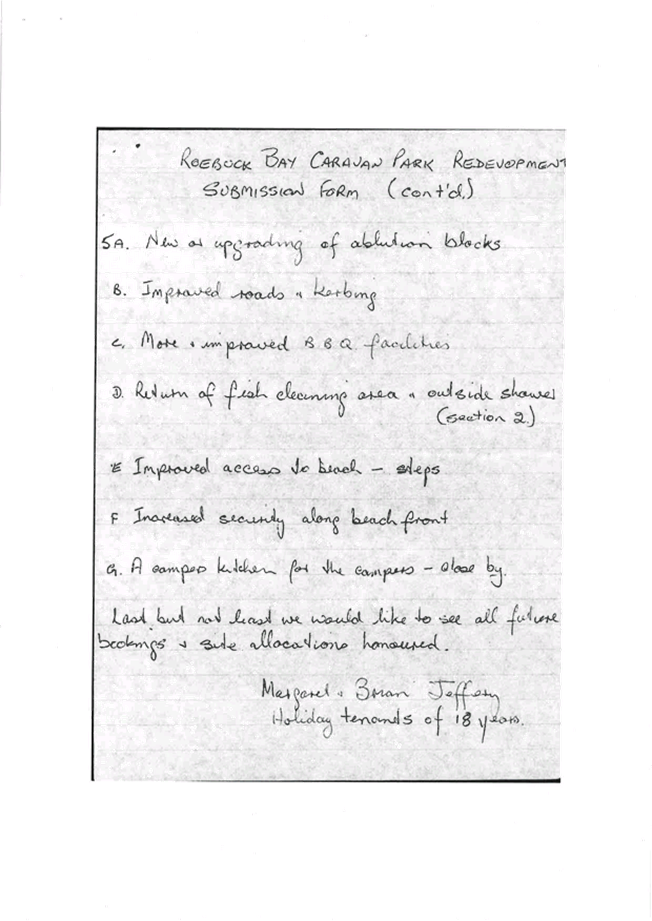 ROEBUCK BAY CARAVAN PARK REDEVOPMENT
SUBMISSION FORM (cont'd.)
5A. New or upgrading of ablution blocks
B. Improved roads & kerbing
C. More & improved B.B.Q. facilities
D. Return of fish cleaning area & outside shower
(section 2.)
E Improved access to beach - steps
F Increased security along beach front
G. A campers kitchen for the campers - close by.
Last but not least we would like to see all future
bookings & site allocations honoured.
Margaret & Brian Jeffery
Holiday tenants of 18 years.